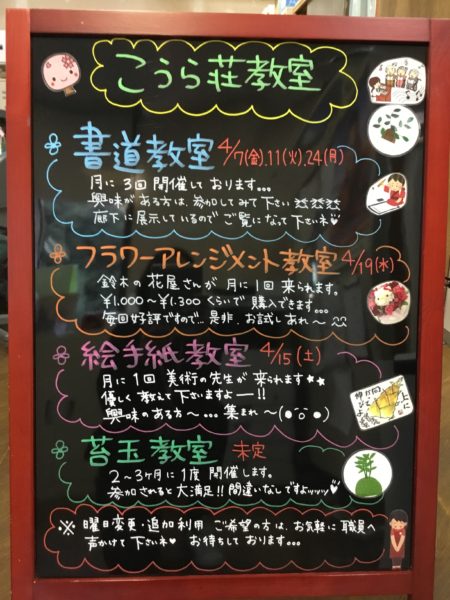 こうら荘教室
書道教室 4/7(金).11(火).24(月)
月に3回開催しております...
興味がある方は、参加してみて下さい
廊下に展示しているので ご覧になって下さいネ♥
フラワーアレンジメント教室 4/19(水)
鈴木の花屋さんが 月に1回 来られます。
¥1,000〜¥1,300くらいで 購入できます...
毎回好評ですので... 是非、お試しあれ〜
絵手紙教室 4/15(土)
月に1回 美術の先生が 来られます★★
優しく 教えて 下さいますよ——!!
興味のある方〜... 集まれ〜
苔玉教室 未定
2〜3ヶ月に1度 開催します。
参加されると大満足!! 間違いなしですよッッッ♥
※ 曜日変更・追加利用 ご希望の方は、お気軽に 職員へ
声かけて下さいネ お待ちしております...